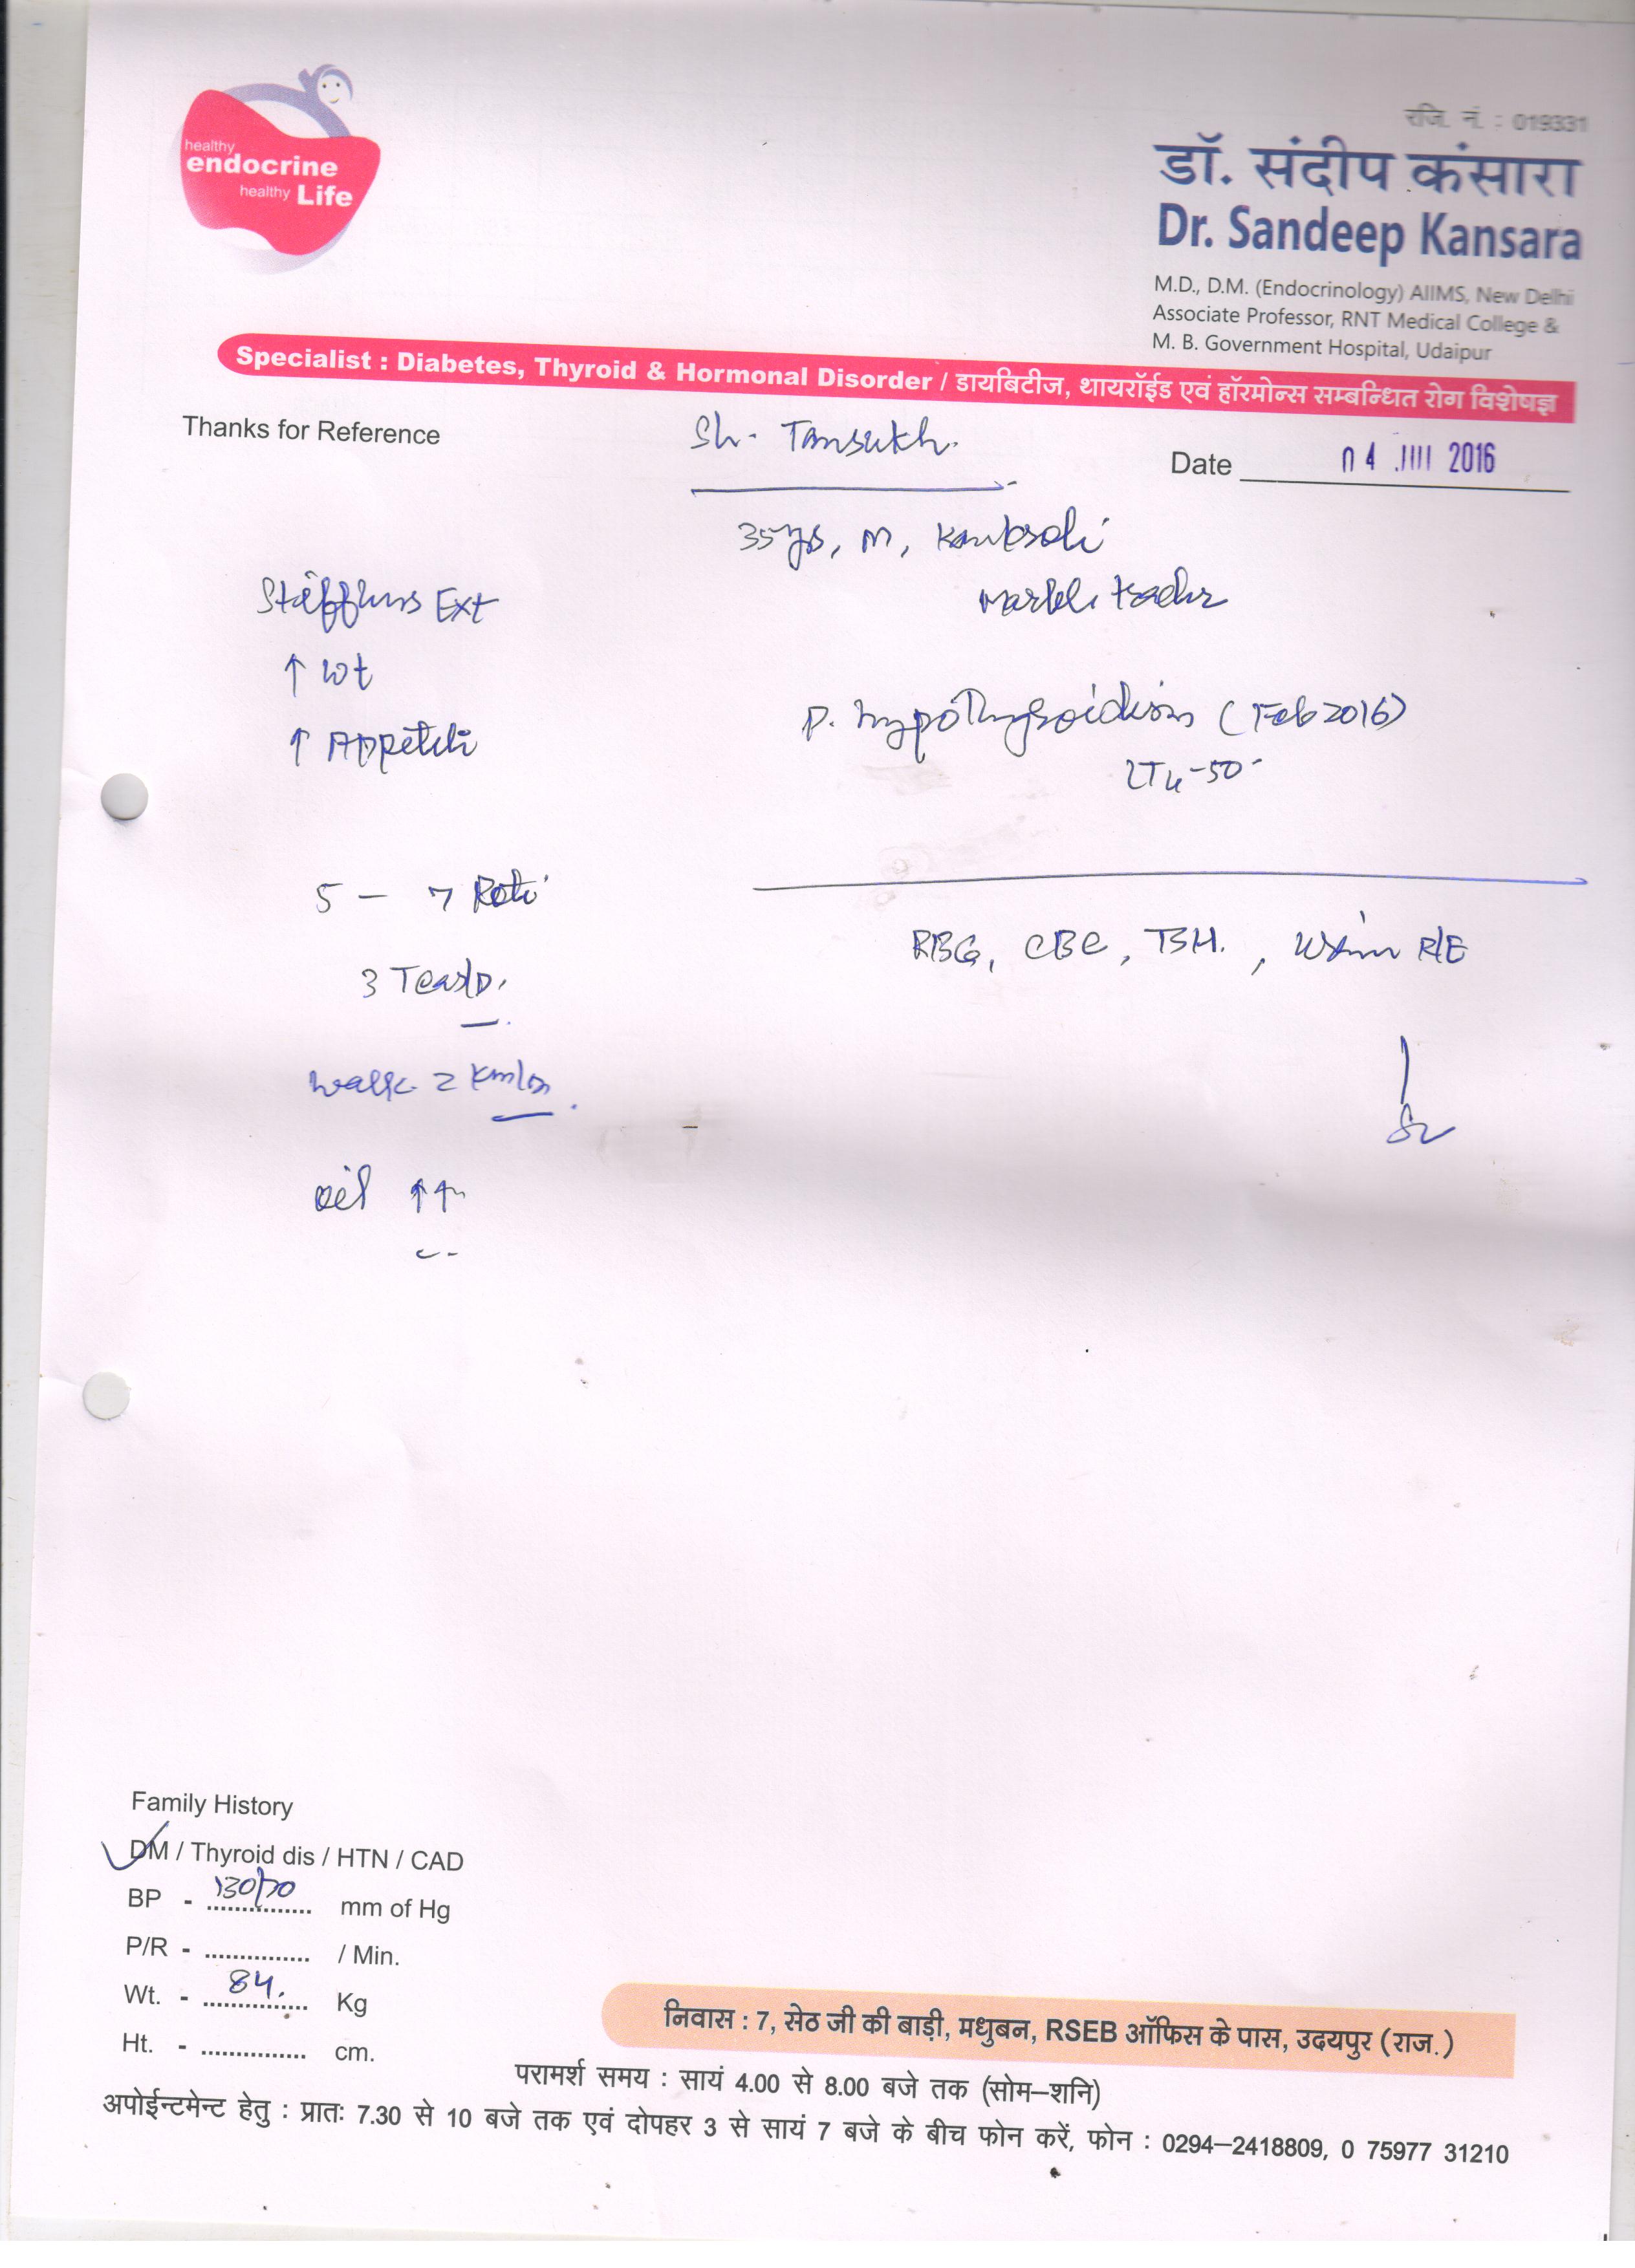 healthy
endocrine
healthy Life
रजि. नं. : 019331
डॉ. संदीप कंसारा
Dr. Sandeep Kansara
M.D., D.M. (Endocrinology) AIIMS, New Delhi
Associate Professor, RNT Medical College &
M. B. Government Hospital, Udaipur
Specialist : Diabetes, Thyroid & Hormonal Disorder / डायबिटीज, थायरॉईड एवं हॉरमोन्स सम्बन्धित रोग विशेषज्ञ
Thanks for Reference
Sh. Tansukh.
Date 04 2016
35 yrs, M,
↑ wt
↑ Appetite
P. hypothyroidism (Feb 2016)
LT4-50
5 - 7 Roti
RBG, CBC, TSH., R/E
3 Tea/D.
walk 2 km/
oil ↑↑
Family History
DM / Thyroid dis / HTN / CAD
BP - 130/70 mm of Hg
P/R - / Min.
Wt. - 84. Kg
Ht. - cm.
निवास : 7, सेठ जी की बाड़ी, मधुबन, RSEB ऑफिस के पास, उदयपुर (राज.)
परामर्श समय : सायं 4.00 से 8.00 बजे तक (सोम–शनि)
अपोईन्टमेन्ट हेतु : प्रातः 7.30 से 10 बजे तक एवं दोपहर 3 से सायं 7 बजे के बीच फोन करें, फोन : 0294–2418809, 0 75977 31210